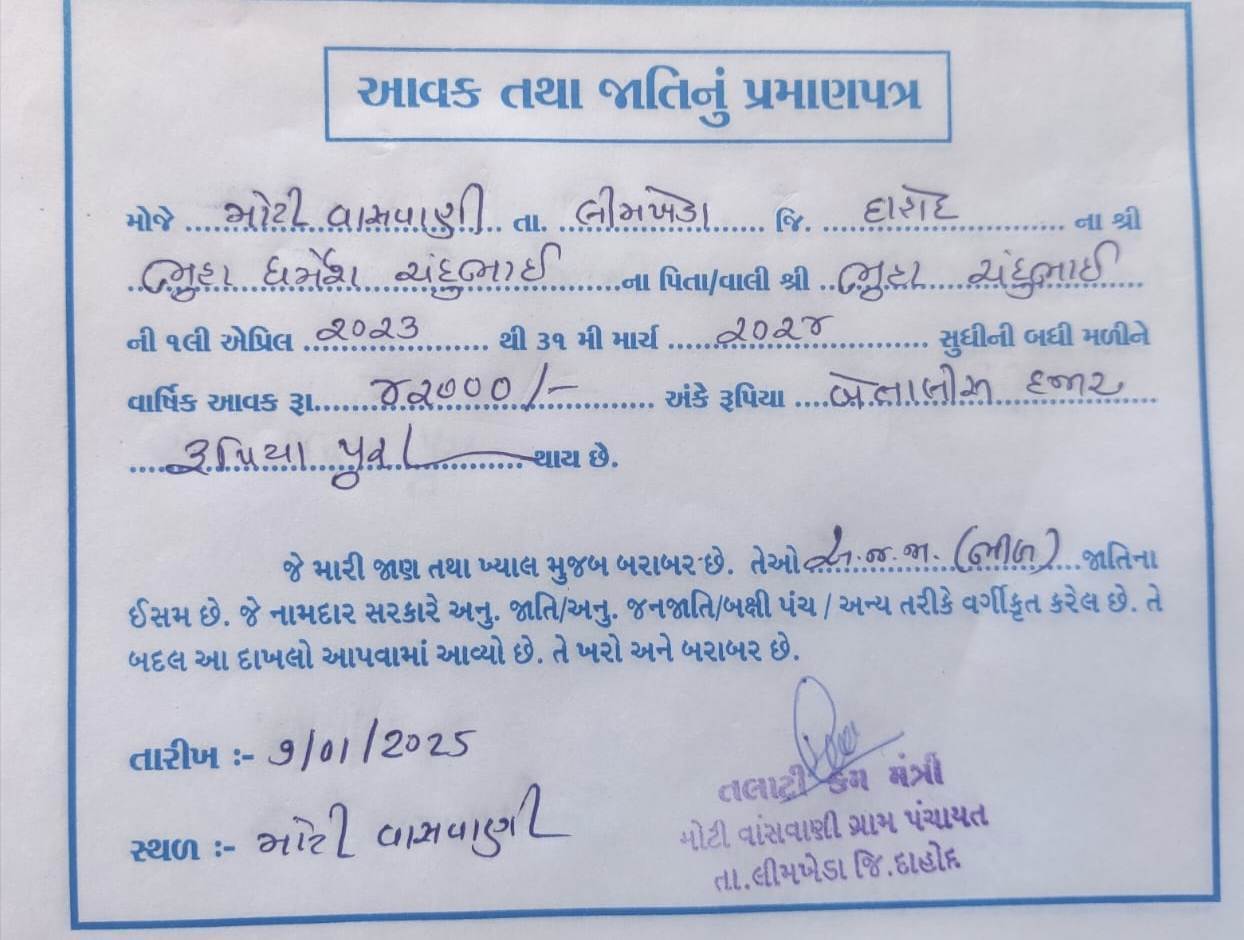 આવક તથા જાતિનું પ્રમાણપત્ર
મોજે મોટી વાસવાણી તા. લીમખેડા જિ. દાહોદ ના શ્રી
ભુહા ધર્મેશ ચંદુભાઈ ના પિતા/વાલી શ્રી ભુહા ચંદુભાઈ
ની ૧લી એપ્રિલ ૨૦૨૩ થી ૩૧ મી માર્ચ ૨૦૨૪ સુધીની બધી મળીને
વાર્ષિક આવક રૂા. ૪૨૦૦૦/- અંકે રૂપિયા બેતાલીસ હજાર
રૂપિયા પુરા થાય છે.
જે મારી જાણ તથા ખ્યાલ મુજબ બરાબર છે. તેઓ અ.જ.જા. (ભીલ) જાતિના
ઈસમ છે. જે નામદાર સરકારે અનુ. જાતિ/અનુ. જનજાતિ/બક્ષી પંચ / અન્ય તરીકે વર્ગીકૃત કરેલ છે. તે
બદલ આ દાખલો આપવામાં આવ્યો છે. તે ખરો અને બરાબર છે.
તારીખ :- ૭/01/2025
સ્થળ :- મોટી વાસવાણી
તલાટી કમ મંત્રી
મોટી વાંસવાણી ગ્રામ પંચાયત
તા.લીમખેડા જિ.દાહોદ